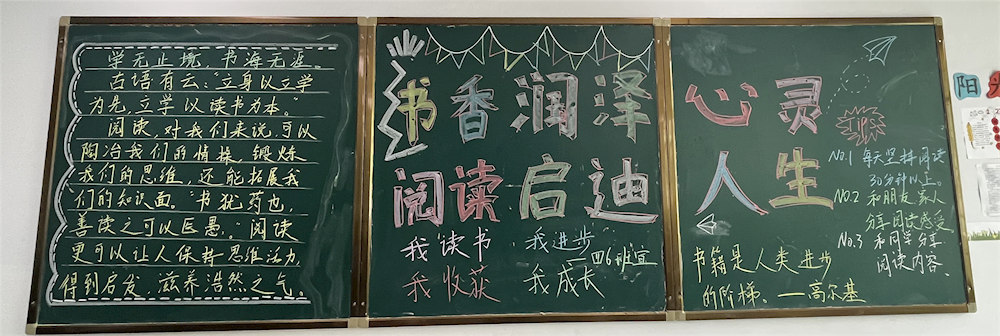 学无止境，书海无涯。
古语有云：“立身以立学
为先，立学以读书为本。”
阅读，对我们来说，可以
陶冶我们的情操，锻炼
我们的思维，还能拓展我
们的知识面。书犹药也，
善读之可以医愚。阅读
更可以让人保持思维活力，
得到启发，滋养浩然之气。
书香润泽心灵
阅读启迪人生
我读书 我进步
一四6班宣
我收获 我成长
No.1 每天坚持阅读
30分钟以上。
NO.2 和朋友家人
分享阅读感受
No.3 和同学分享
阅读内容。
书籍是人类进步
的阶梯。——高尔基
阳